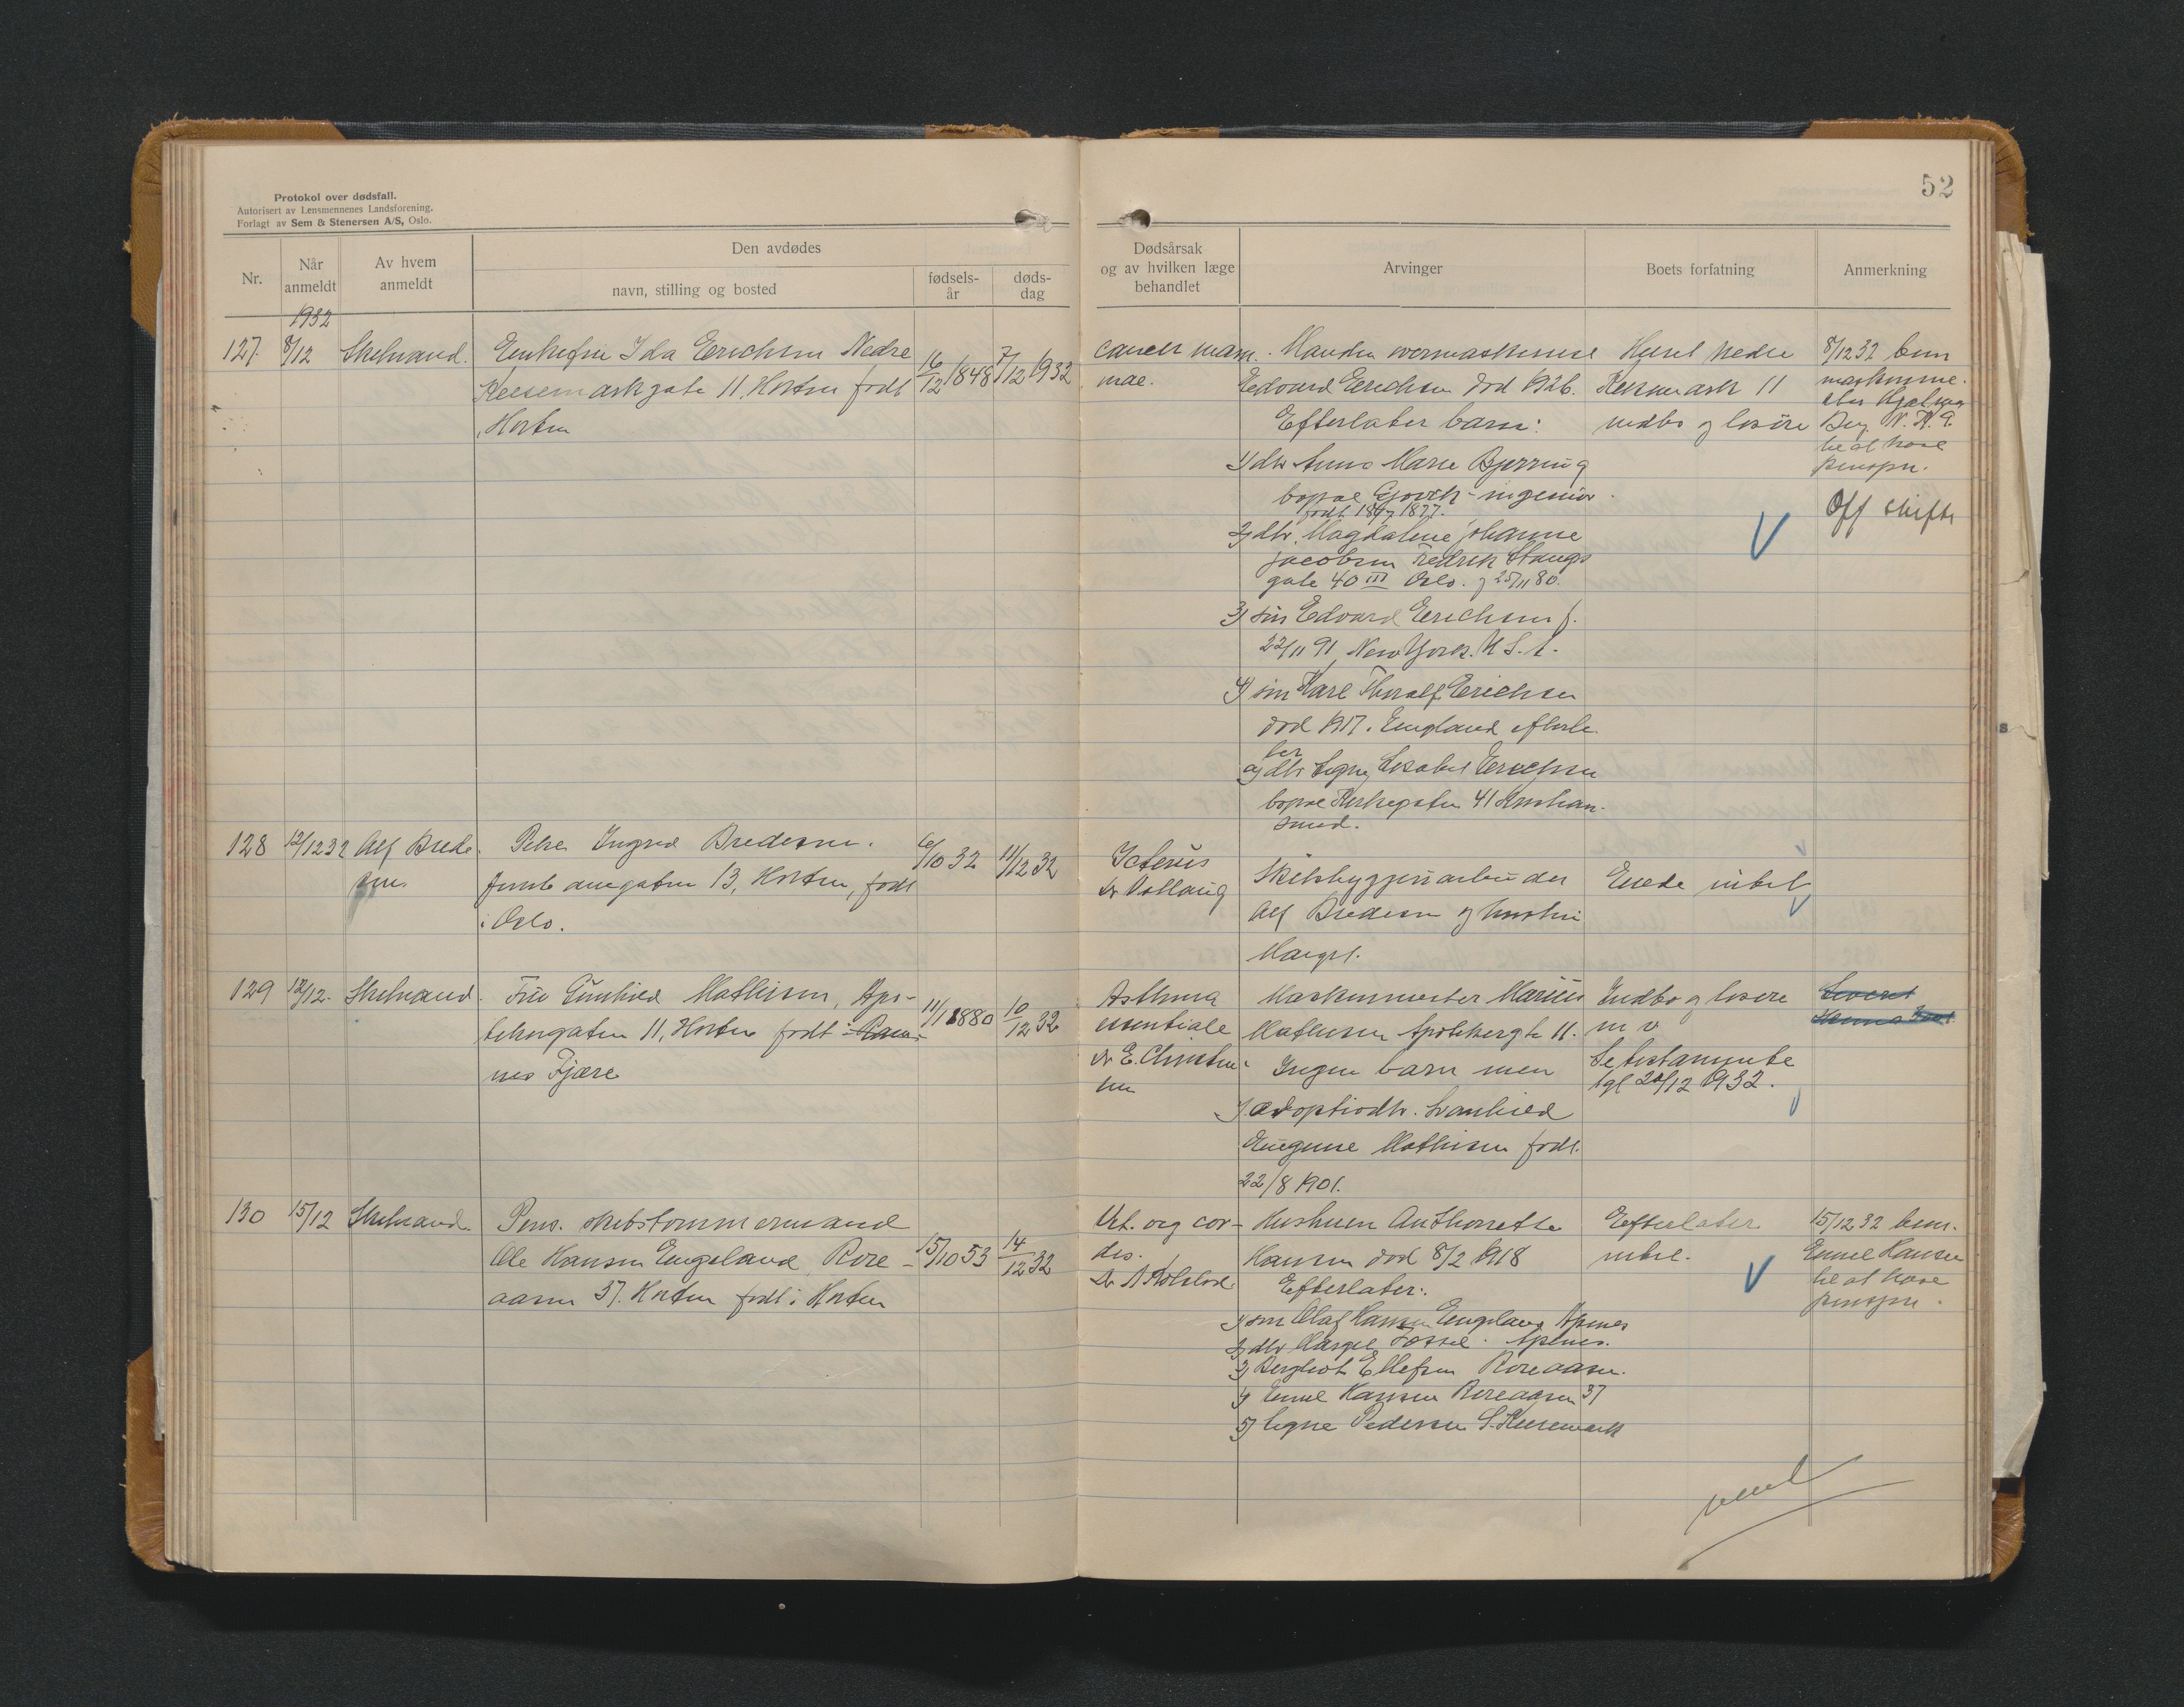 Protokol over dødsfall.
Autorisert av Lensmennenes Landsforening.
Forlagt av Sem & Stenersen A/S, Oslo.
52
Nr.
Når anmeldt
Av hvem anmeldt
Den avdødes
navn, stilling og bosted
fødsels-år
døds-dag
Dødsårsak og av hvilken læge behandlet
Arvinger
Boets forfatning
Anmerkning
1932
127.
8/12
Enkefru Ida Erichsen Nedre
Keisemarkgate 11, Horten født
i Horten
16/12 1848
7/12 1932
cancer mam
mae.
Manden overmaskinist
Edvard Erichsen død 1926.
Efterlater barn:
1) dtr Anna Marie Bjerring
bopæl Gjøvik - ingeniør
født 1877.
2) dtr. Magdalene Johanne
Jacobsen Fredrik Stangs
gate 40 III Oslo. f 25/11 80.
3) søn Edvard Erichsen f.
22/11 91, New York. U.S.A.
4) søn Karl Thoralf Erichsen
død 1917. England efterla
ter
a) dtr Signe Erichsen
bopæl Kirkegaten 41 Kristian-
sund.
Huset nedre
Keisemark 11
indbo og løsøre
8/12 32 bem
maskinme.
ster Hjalmar
Berg
be at have
pengen.
Off skifte
128
12/12 32
Alf Brede
sen.
Pike Ingrid Bredesen.
gaten 13, Horten, født
i Oslo.
6/10 32
11/12 32
Icterus
dr Vollaug
Skibsbyggeriarbeider
Alf Bredesen og hustru
Margit.
Eiede intet
129
12/12.
Fru Gunhild Mathisen, Apo-
tekergaten 11, Horten født i
nes Fjære
11/1 1880
10/12 32
Asthma
essentiale
dr E. Christen
sen
Maskinmester Marius
Mathisen Apotekergt 11.
Ingen barn men
1 adoptivdtr. Svanhild
Eugenie Mathisen født.
22/8 1901.
Indbo og løsøre
m v
Se testamente
tgl 20/12 1932.
130
15/12
Pens. skibstømmermand
Ole Hansen Engeland Røre-
aasen 37. Horten født i Horten
15/10 53
14/12 32
Vit. org cor-
dis.
Hustruen Anthonette
Hansen død 8/2 1918
Efterlater:
1) søn Olaf Hansen Engeland Apenes
2) dtr Margit Apenes.
3) Bergliot Ellefsen Røreaasen.
4) Emil Hansen Røreaasen 37
5) Signe Pedersen S. Keisemark
Efterlater
intet.
15/12 32 bem.
Emil Hansen
be at have
pengen.